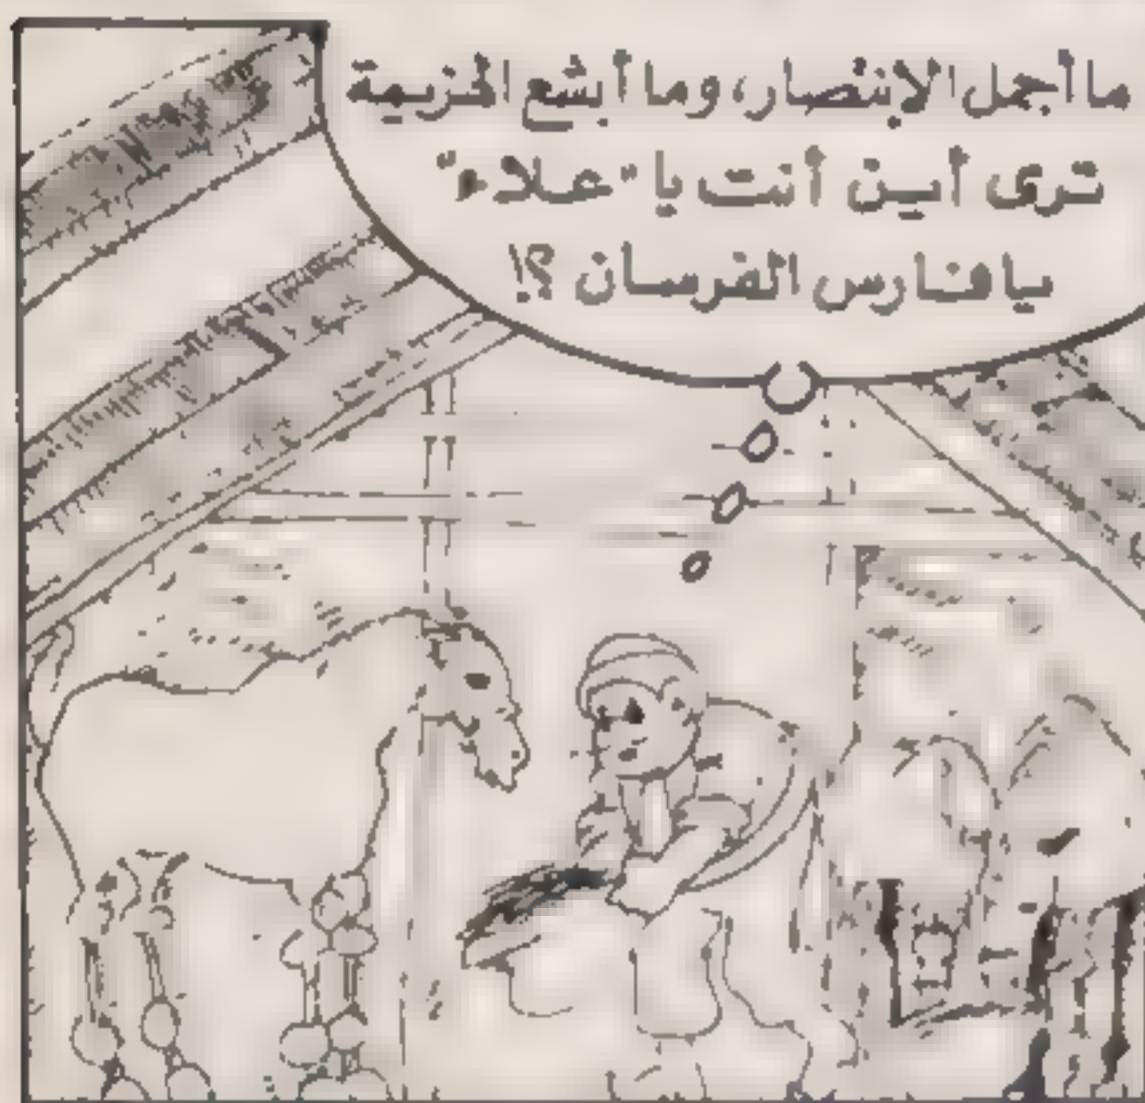 ما أجمل الإنتصار، وما أبشع الهزيمة
ترى أين أنت يا "علاء"
يا فارس الفرسان ؟!